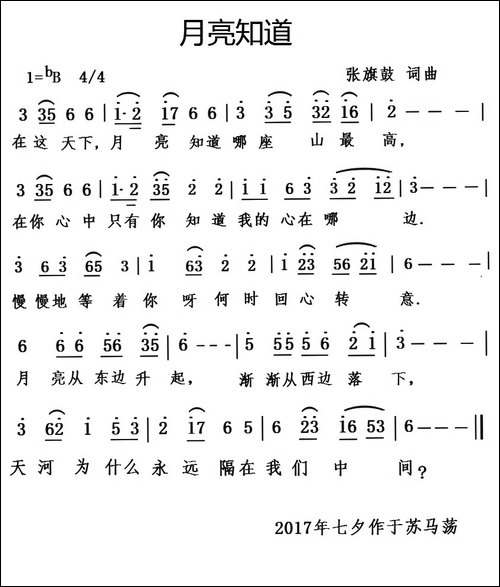 月亮知道
1=ᵇB 4/4 张旗鼓 词曲
3 35 6 6 | 1·2 17 6 6 | 3 3 5 32 16 | 2 - - - |
在这 天下,月 亮 知道哪座 山最高,
3 35 6 6 | 1·2 35 2 2 | 1 1 6 3 3 2 12 | 3 - - - |
在你 心中只有你 知道我的心在哪 边.
3 6 3 65 3 | 1 63 2 2 | 1 23 56 21 | 6 - - - |
慢慢地等着你 呀何时回心转 意.
6 6 6 56 35 | 6 - - - | 5 55 5 6 2 1 | 3 - - - |
月 亮从东边升 起, 渐 渐从西边落 下,
3 62 1 5 3 | 2 17 6 5 | 6 23 16 53 | 6 - - - ‖
天河为什么永远隔在我们中 间?
2017年七夕作于苏马荡